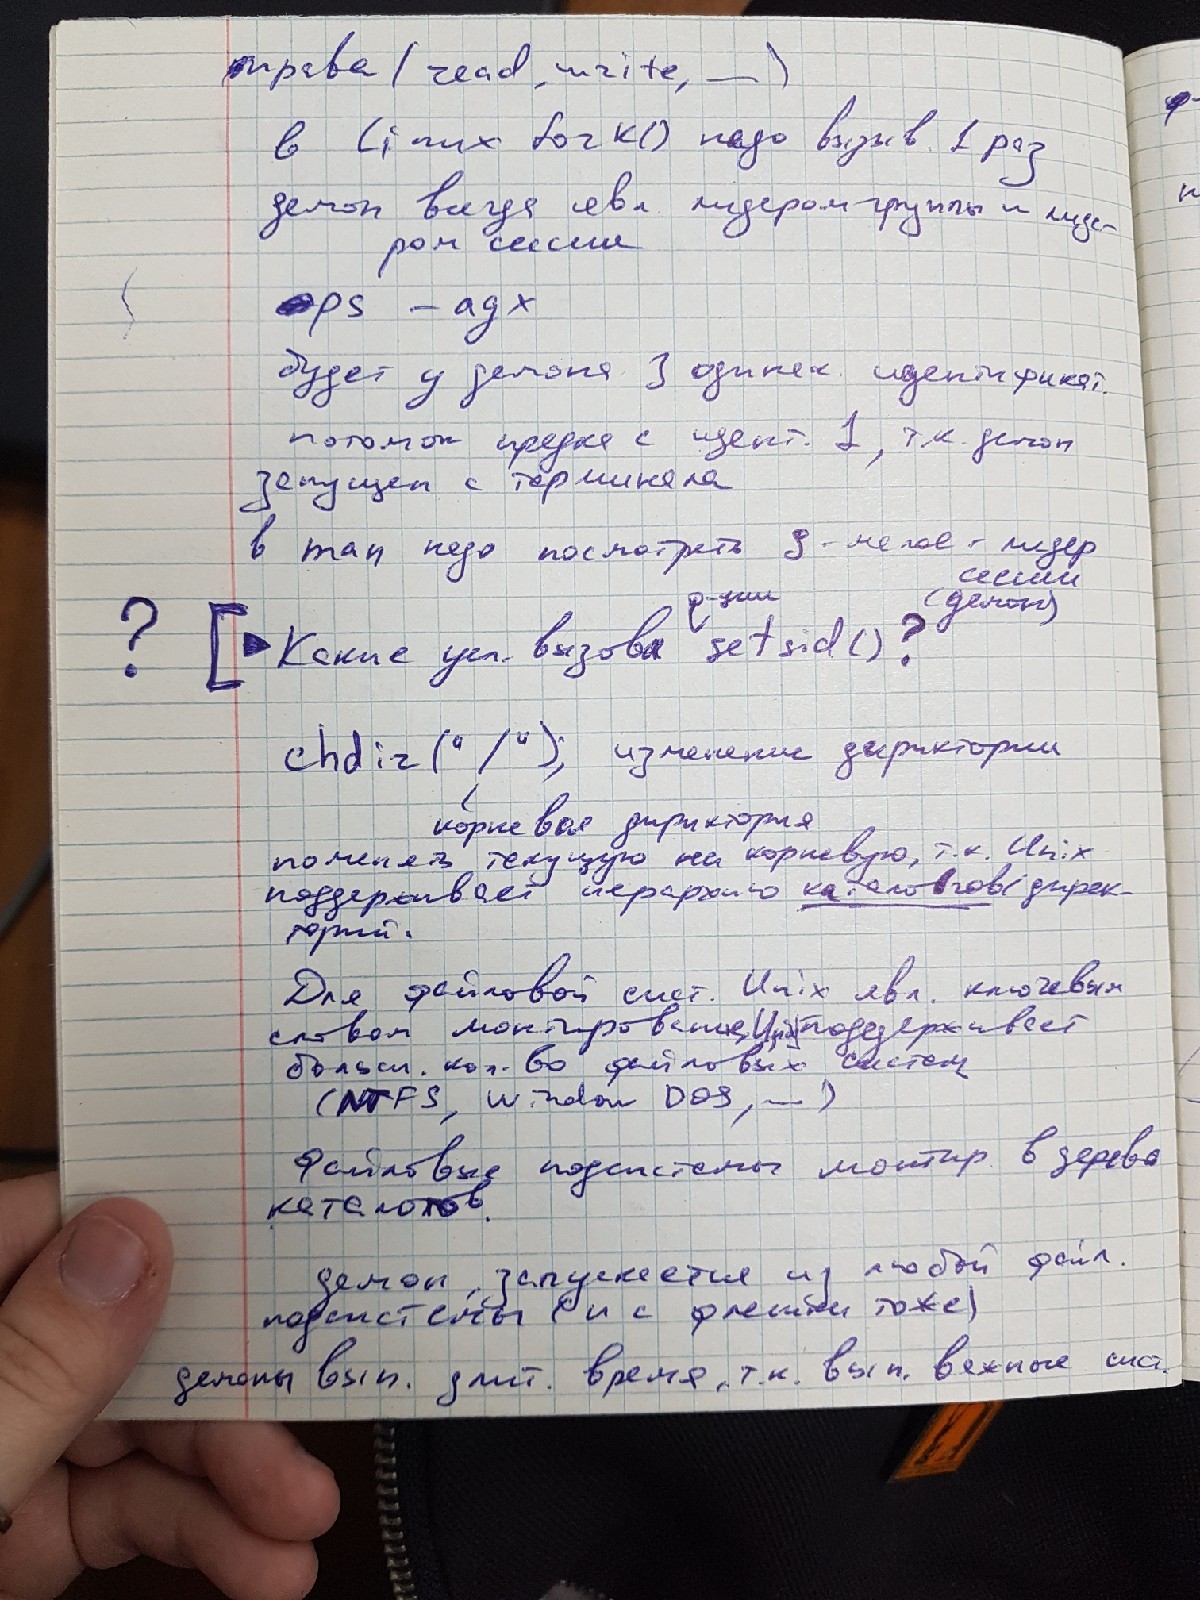 права (read, write, —)
в Linux fork() надо вызыв. 1 раз
демон всегда явл. лидером группы и лиде-
ром сессии
ps -agx
будет у демона 3 одинак. идентификат.
потомок предка с идент. 1, т.к. демон
запущен с терминала
в man надо посмотреть лидер
сессии
(демон)
ф-ции
? Какие усл. вызова setsid()?
chdir("/"); изменение дириктории
корневая дириктория
поменять текущую на корневую, т.к. Unix
поддерживает иерархию каталогов/дирек-
торий.
Для файловой сист. Unix явл. ключевым
словом монтирование, поддерживает
больш. кол-во файловых систем
(NTFS, Window DOS, —)
Файловые подсистемы монтир. в дерево
каталогов.
демон запускается из любой файл.
подсистемы (и с флешки тоже)
демоны вып. длит. время, т.к. вып. важные сист.